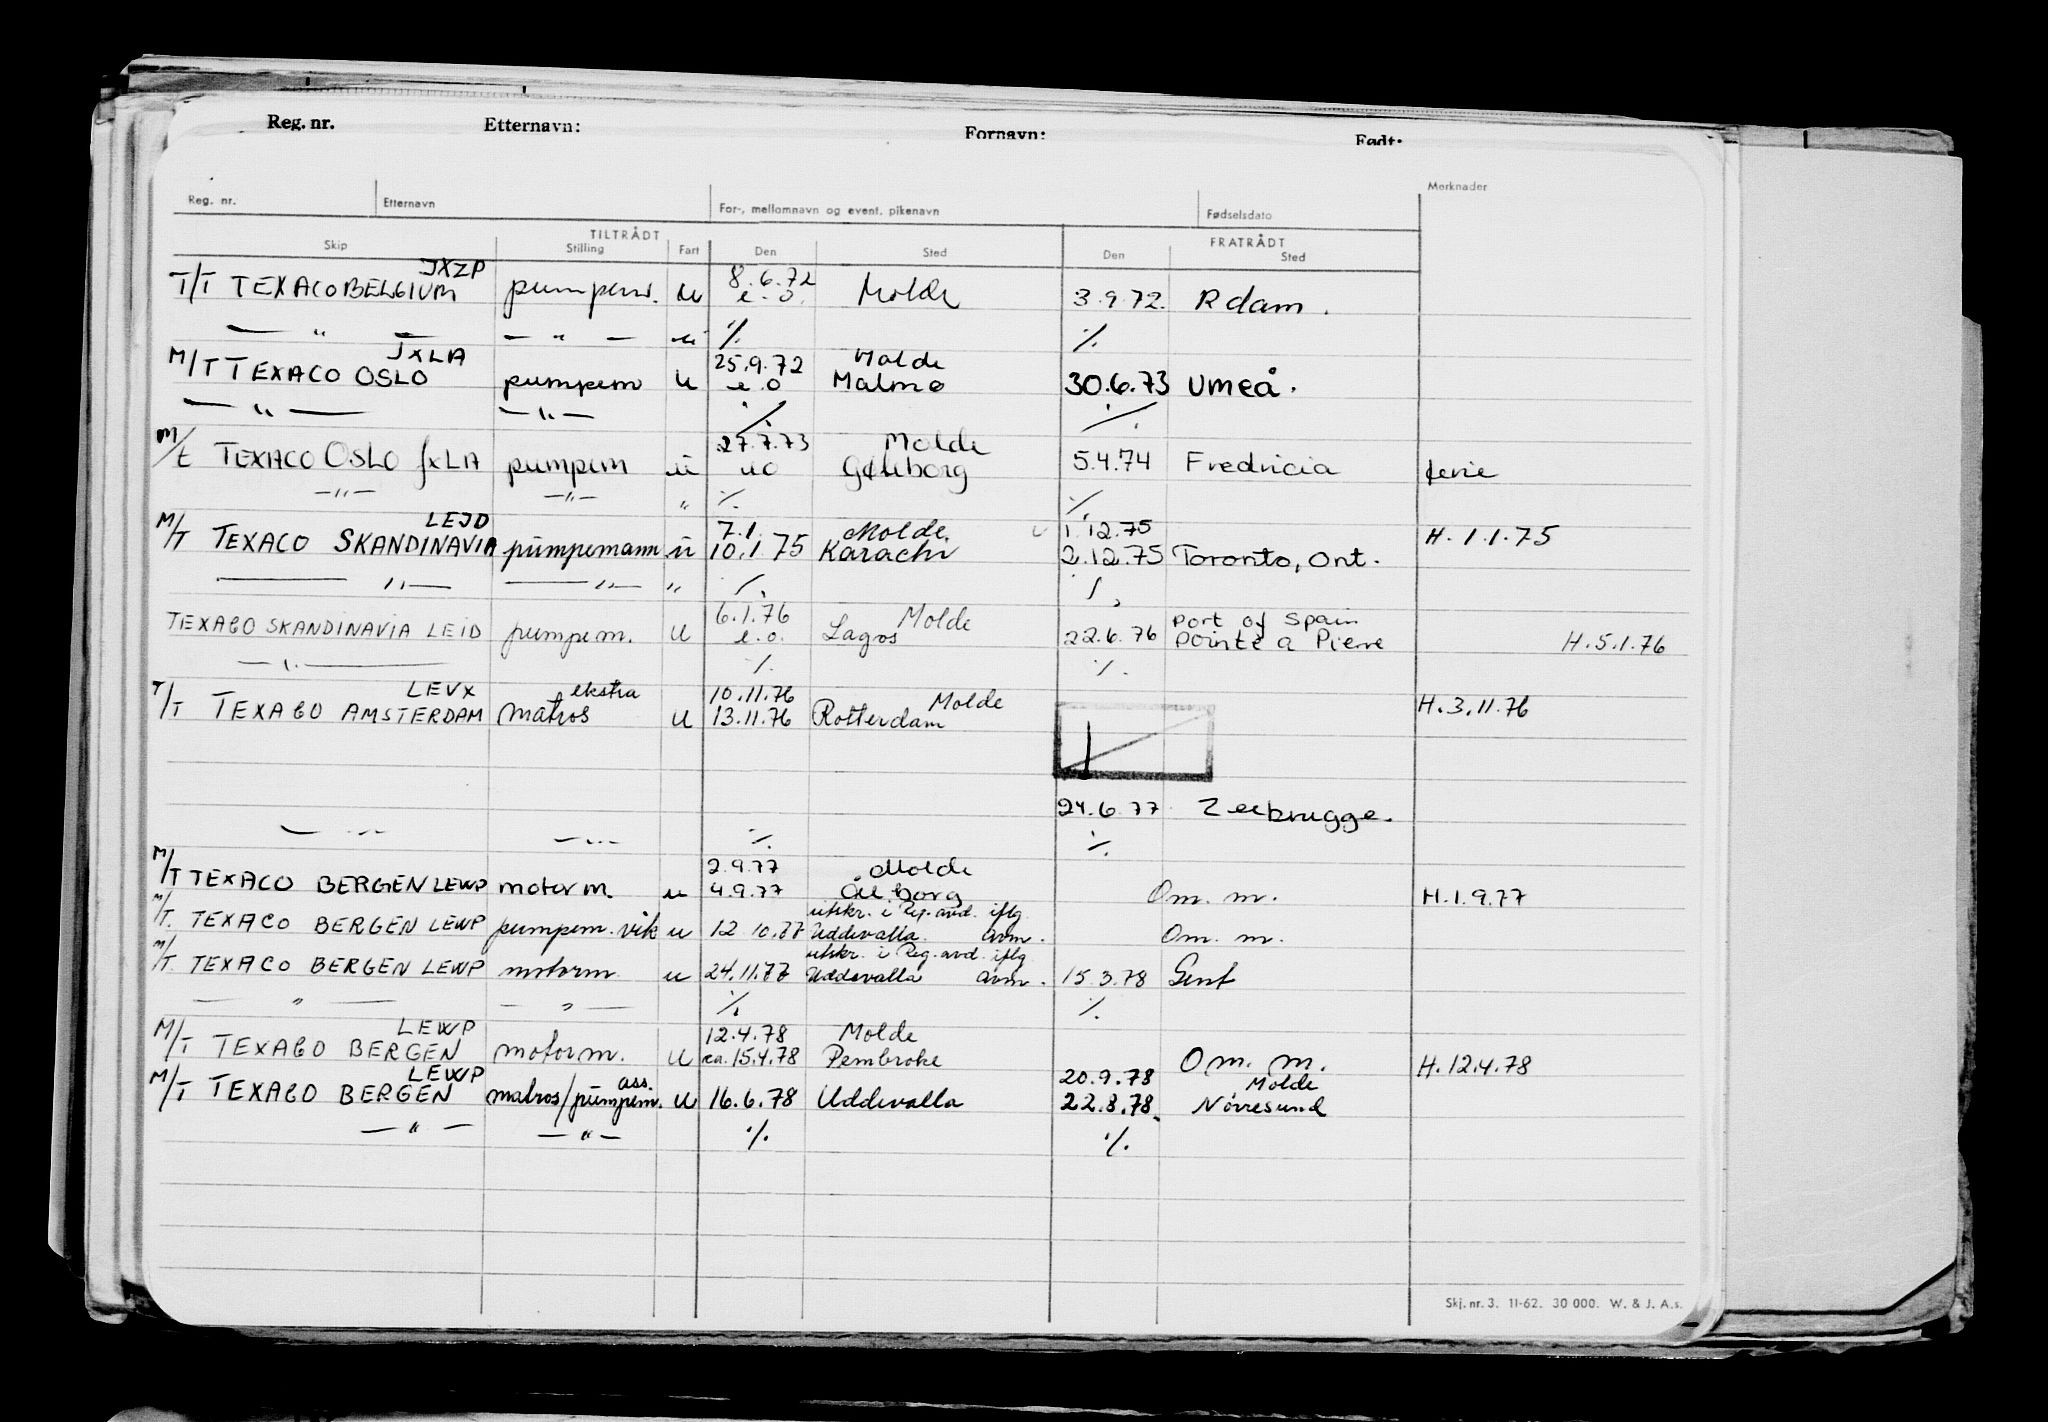 Reg. nr. Etternavn: Fornavn: Født:
Merknader
Reg. nr. Etternavn For-, mellomnavn og event. pikenavn Fødselsdato
TILTRÅDT FRATRÅDT
Skip Stilling Fart Den Sted Den Sted
JXZP 8.6.72
T/T TEXACO BELGIUM pumpem. u e.o. Molde 3.9.72. Rdam.
— " — " — u % %
JXLA 25.9.72 Molde
M/T TEXACO OSLO pumpem u e.o Malmø 30.6.73 Umeå.
— " — — " — % %
27.7.73 Molde
M/t TEXACO OSLO JXLA pumpem u uo Gøteborg 5.4.74 Fredricia ferie
— " — — " — " % %
LEJD 7.1. Molde. 1.12.75
M/T TEXACO SKANDINAVIA pumpemann u 10.1.75 Karachi 2.12.75 Toronto, Ont. H.1.1.75
— " — — " — " % %
6.1.76 Molde Port of Spain
TEXACO SKANDINAVIA LEJD pumpem. u e.o. Lagos 22.6.76 Pointe a Pierre H.5.1.76
— " — % %
LEVX ekstra 10.11.76 Molde
T/T TEXACO AMSTERDAM matros u 13.11.76 Rotterdam H.3.11.76
24.6.77 Zeebrugge.
— " — — " — % %
2.9.77 Molde
M/T TEXACO BERGEN LEWP motorm. u 4.9.77 Ålborg Om. m. H.1.9.77
utskr. i Reg. avd. iflg
M/T. TEXACO BERGEN LEWP pumpem. vik u 12.10.77 Uddevalla avm. Om. m.
utskr. i Reg. avd. iflg
M/T. TEXACO BERGEN LEWP motorm. u 24.11.77 Uddevalla avm. 15.3.78 Gent
— " — — " — % %
LEWP 12.4.78 Molde
M/T TEXACO BERGEN motorm. u ca. 15.4.78 Pembroke Om. m. H.12.4.78
LEWP ass. 20.9.78 Molde
M/T TEXACO BERGEN matros/pumpem. u 16.6.78 Uddevalla 22.8.78. Nörresund
— " — — " — % %
Skj. nr. 3. 11-62. 30 000. W. & J. A.s.